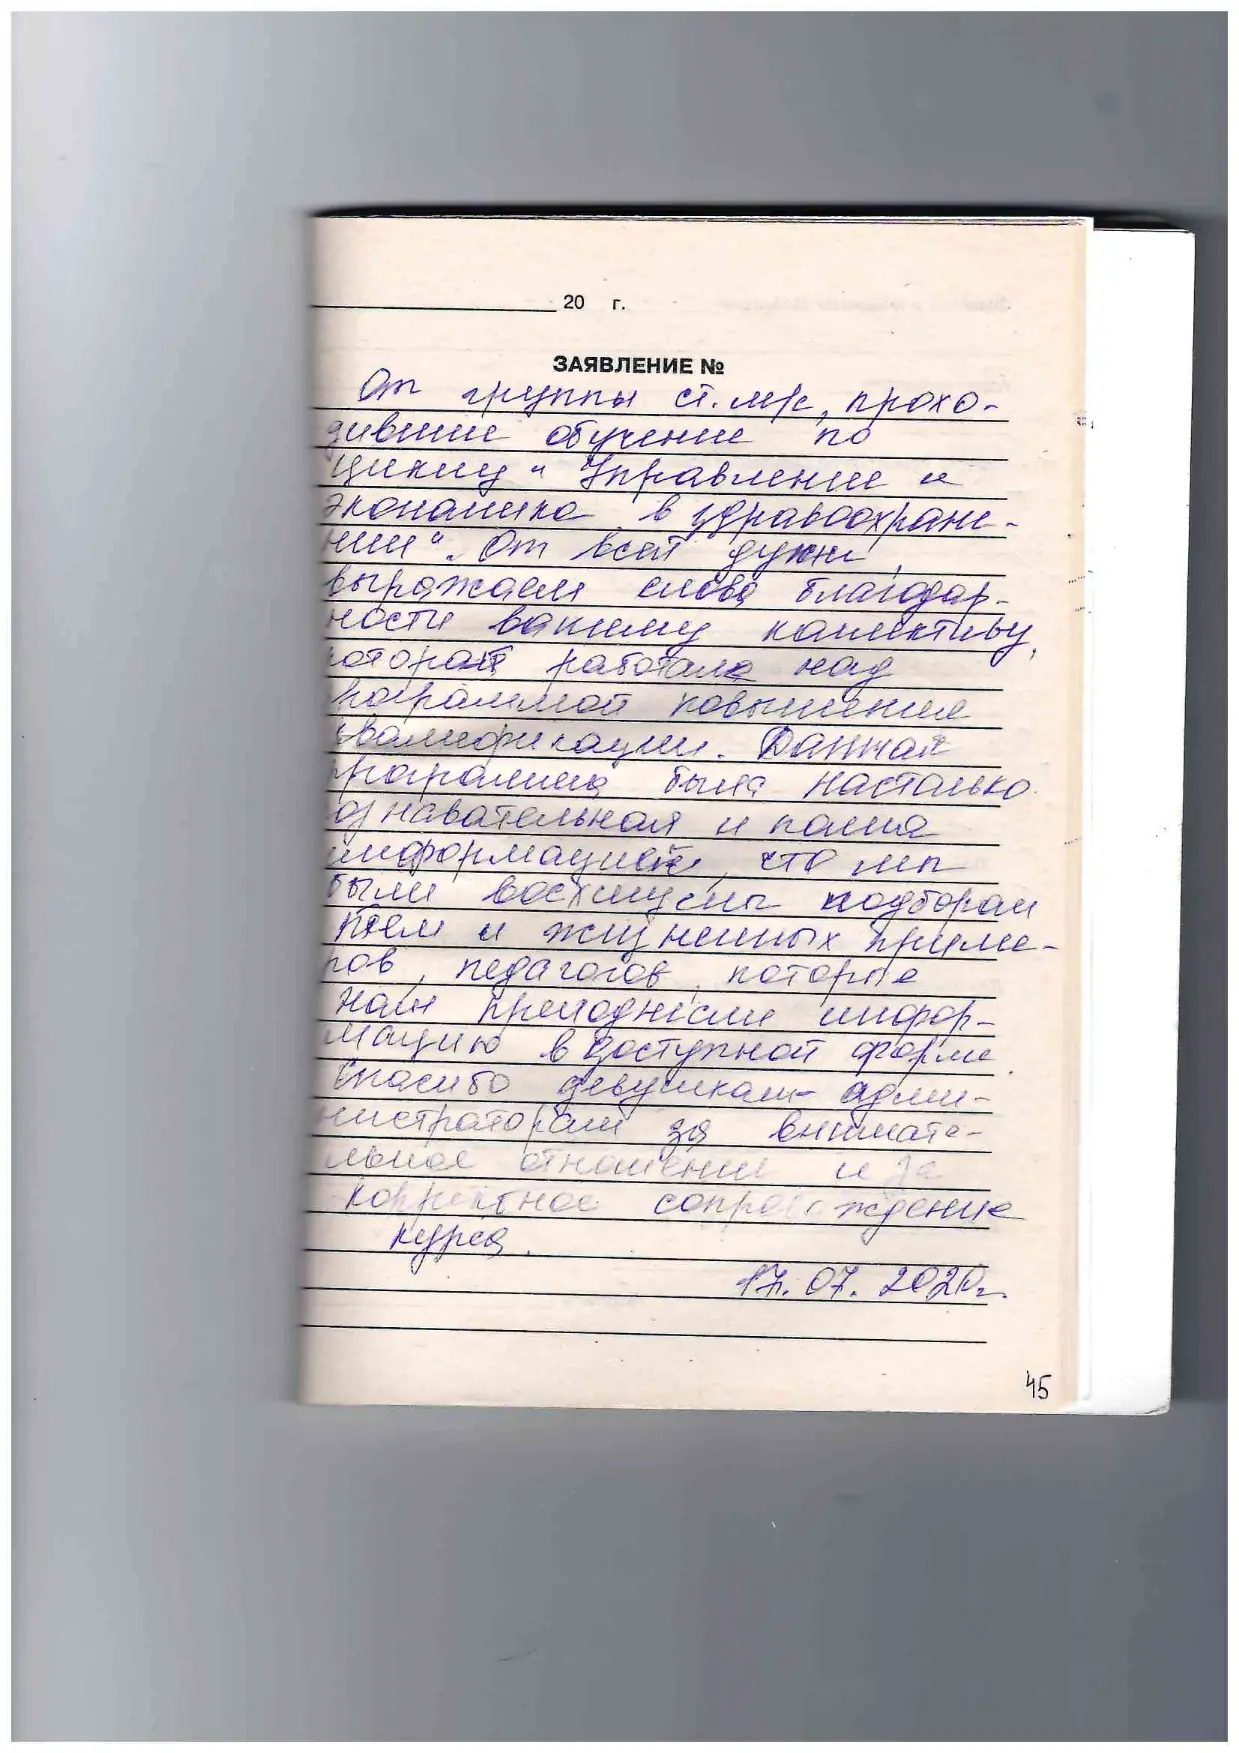 20 г.
ЗАЯВЛЕНИЕ №
От группы ст. м/с, прохо-
дившие обучение по
циклу "Управление и
экономика в здравоохране-
нии". От всей души,
выражаем слова благодар-
ности вашему коллективу,
который работала над
программой повышение
квалификации. Данная
программа была настолько
познавательная и полна
информацией, что мы
были восхищены подбором
тем и жизненных приме-
ров, педагогов, которые
нам преподнесли инфор-
мацию в доступной форме.
Спасибо девушкам- адми-
нистраторам за внимате-
льное отношение и за
корректное сопровождение
курса.
17.07.2020г.
45